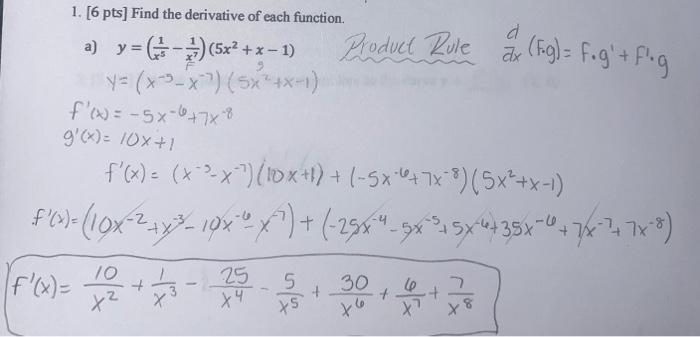 1. [6 pts] Find the derivative of each function.
a) y = (1/x⁵ − 1/x⁷)(5x² + x − 1) Product Rule d/dx (F·g) = F·g' + F'·g
F g
y = (x⁻⁵ − x⁻⁷)(5x² + x − 1)
f'(x) = −5x⁻⁶ + 7x⁻⁸
g'(x) = 10x + 1
f'(x) = (x⁻³ − x⁻⁷)(10x + 1) + (−5x⁻⁶ + 7x⁻⁸)(5x² + x − 1)
f'(x) = (10x⁻² + x⁻³ − 10x⁻⁶ − x⁻⁷) + (−25x⁻⁴ − 5x⁻⁵ + 5x⁻⁶ + 35x⁻⁶ + 7x⁻⁷ + 7x⁻⁸)
f'(x) = 10/x² + 1/x³ − 25/x⁴ − 5/x⁵ + 30/x⁶ + 6/x⁷ + 7/x⁸